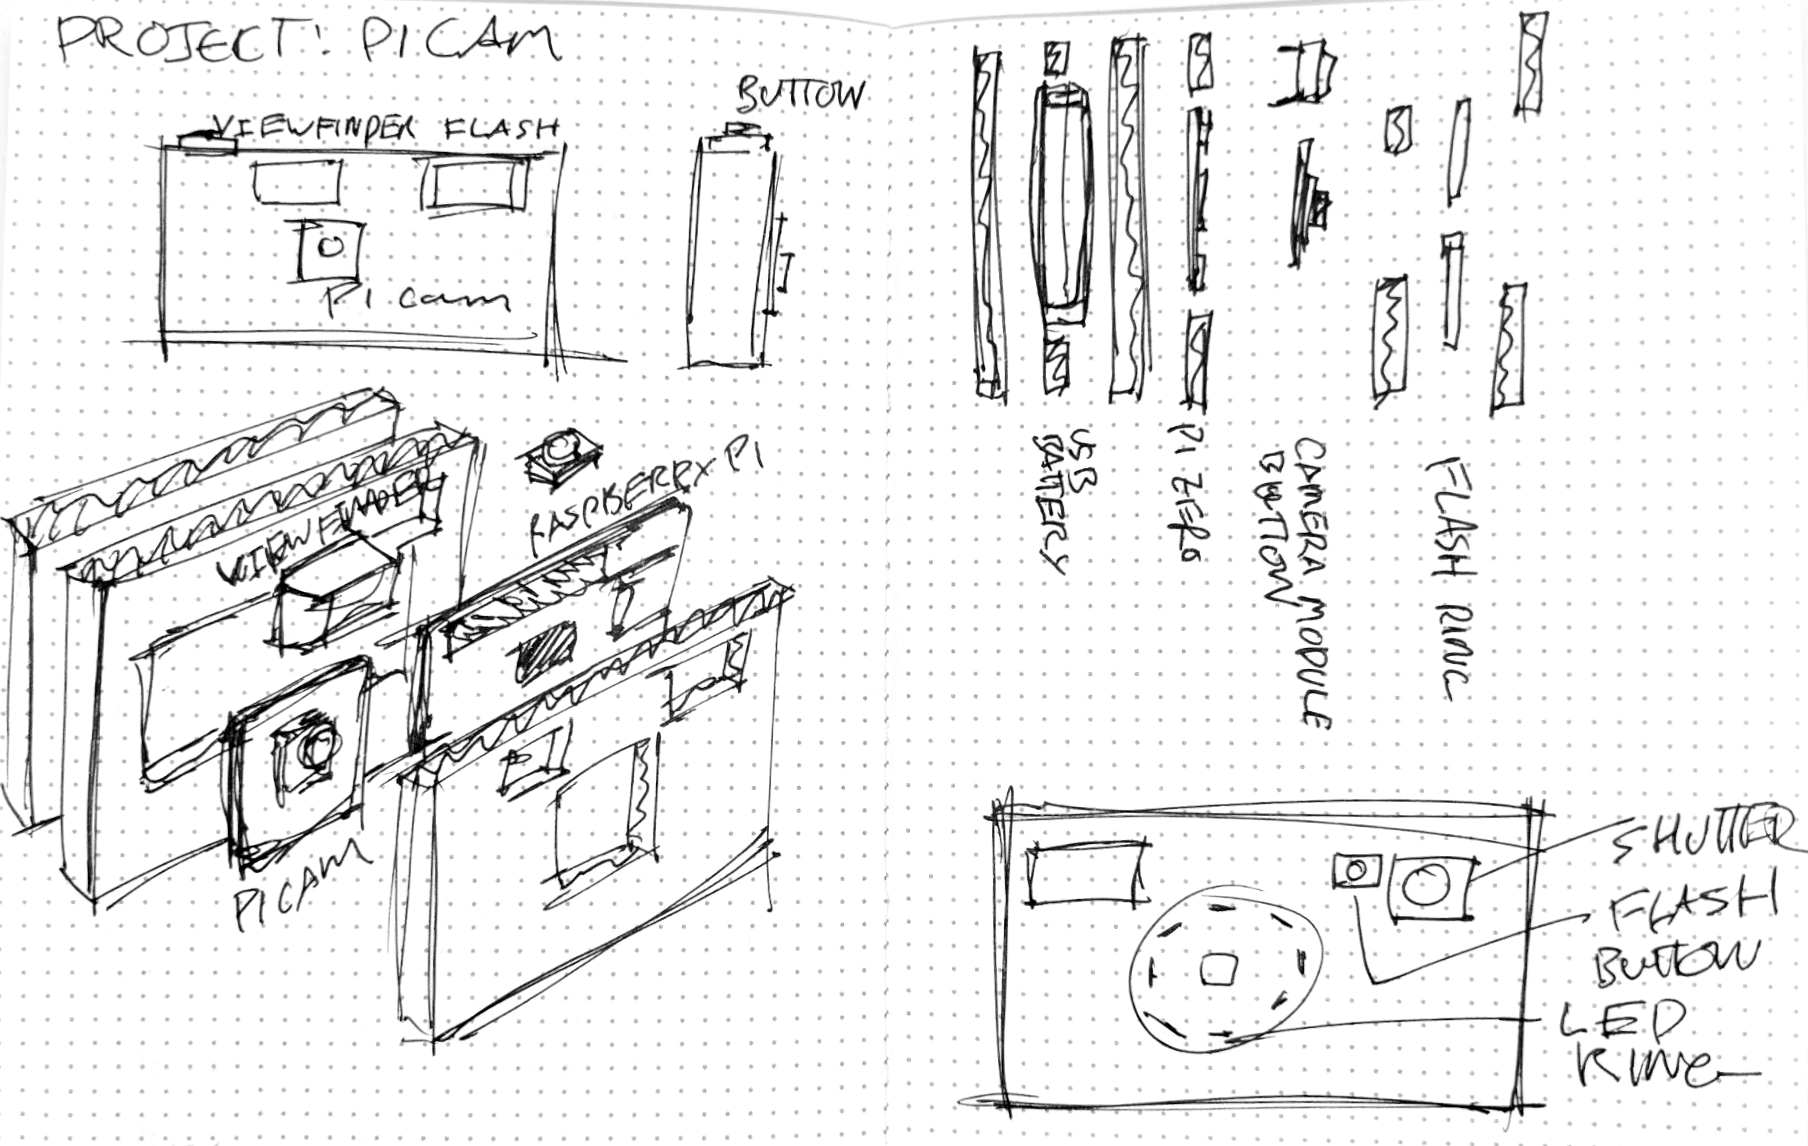 PROJECT: PICAM
VIEWFINDER FLASH
BUTTON
Pi cam
VIEWFINDER
RASPBERRY PI
PICAM
USB
BATTERY
PI ZERO
CAMERA MODULE
BUTTON
FLASH RING
SHUTTER
FLASH
BUTTON
LED
RING